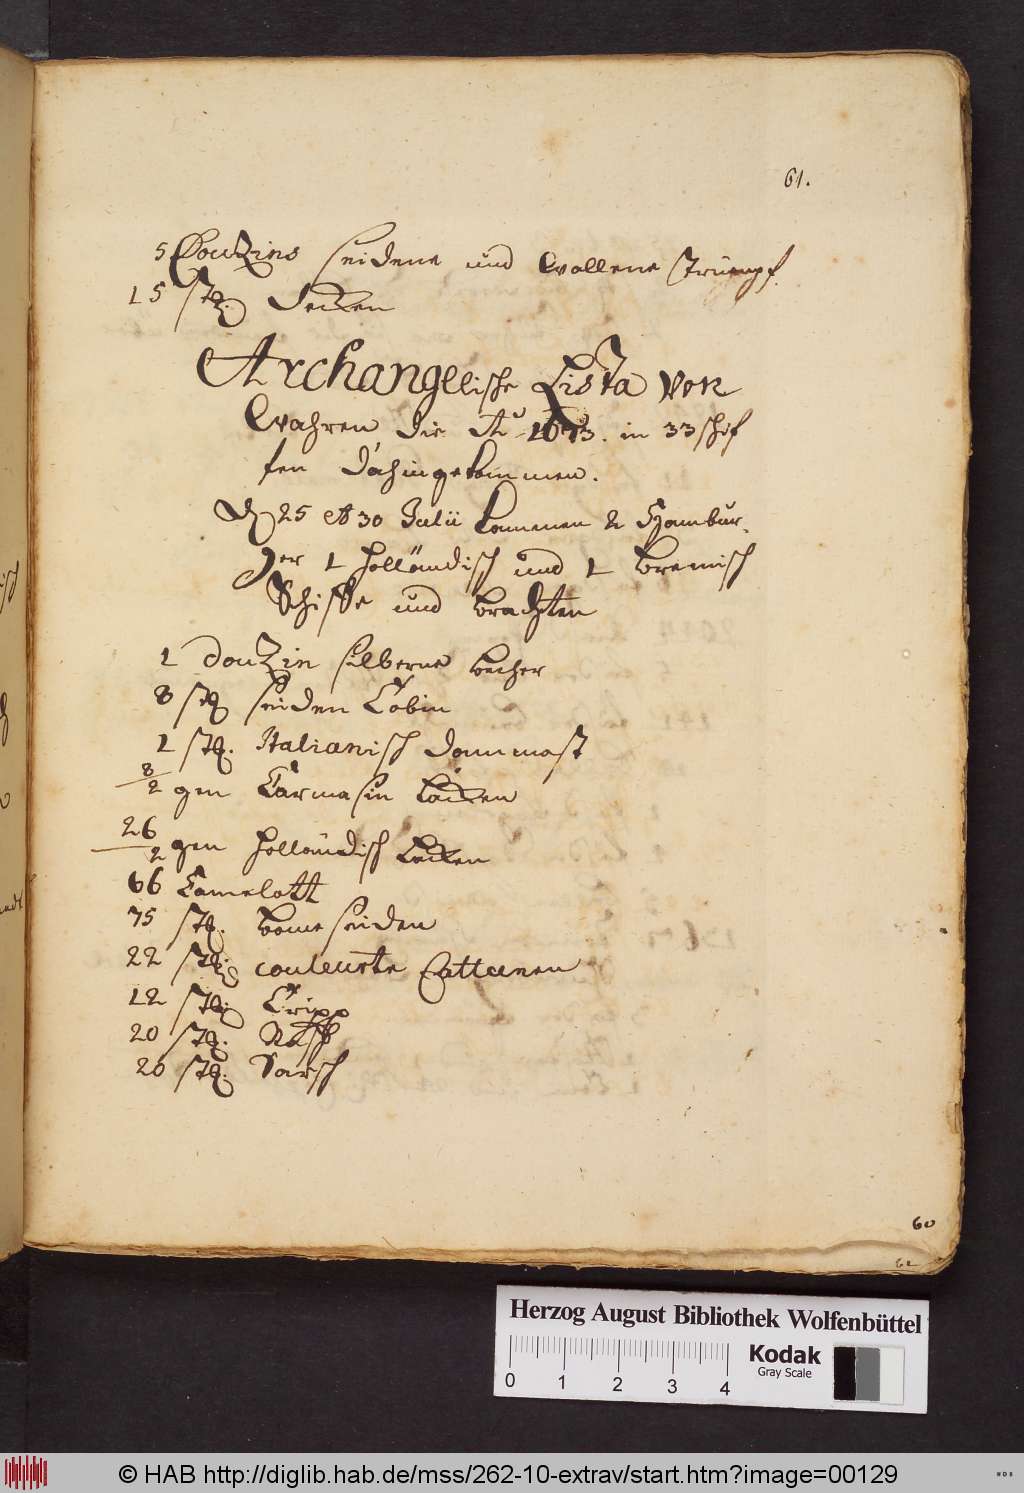 61.
5 Douzins seidene und Wollene Strümpf.
15 stk. Decken
Archangelische Lista von
Wahren die Aº 1673. in 33 schif
fen dahingekommen.
25 et 30 Julii kommen 2 Hambur-
ger 1 Holländisch und 1 bremisch
Schiffe und brachten
1 douzin silberne becher
8 stk seiden Tobin
1 stk. Italianisch dammast
8/2 gen Carmasin lacken
26/2 gen Holländisch Lacken
66 Camelott
75 stk. bome seiden
22 stk. couleurte Cattunen
12 stk. Tripp
20 stk. Rasch
20 stk. Sarsch
60
Herzog August Bibliothek Wolfenbüttel
0 1 2 3 4
Kodak
Gray Scale
© HAB http://diglib.hab.de/mss/262-10-extrav/start.htm?image=00129